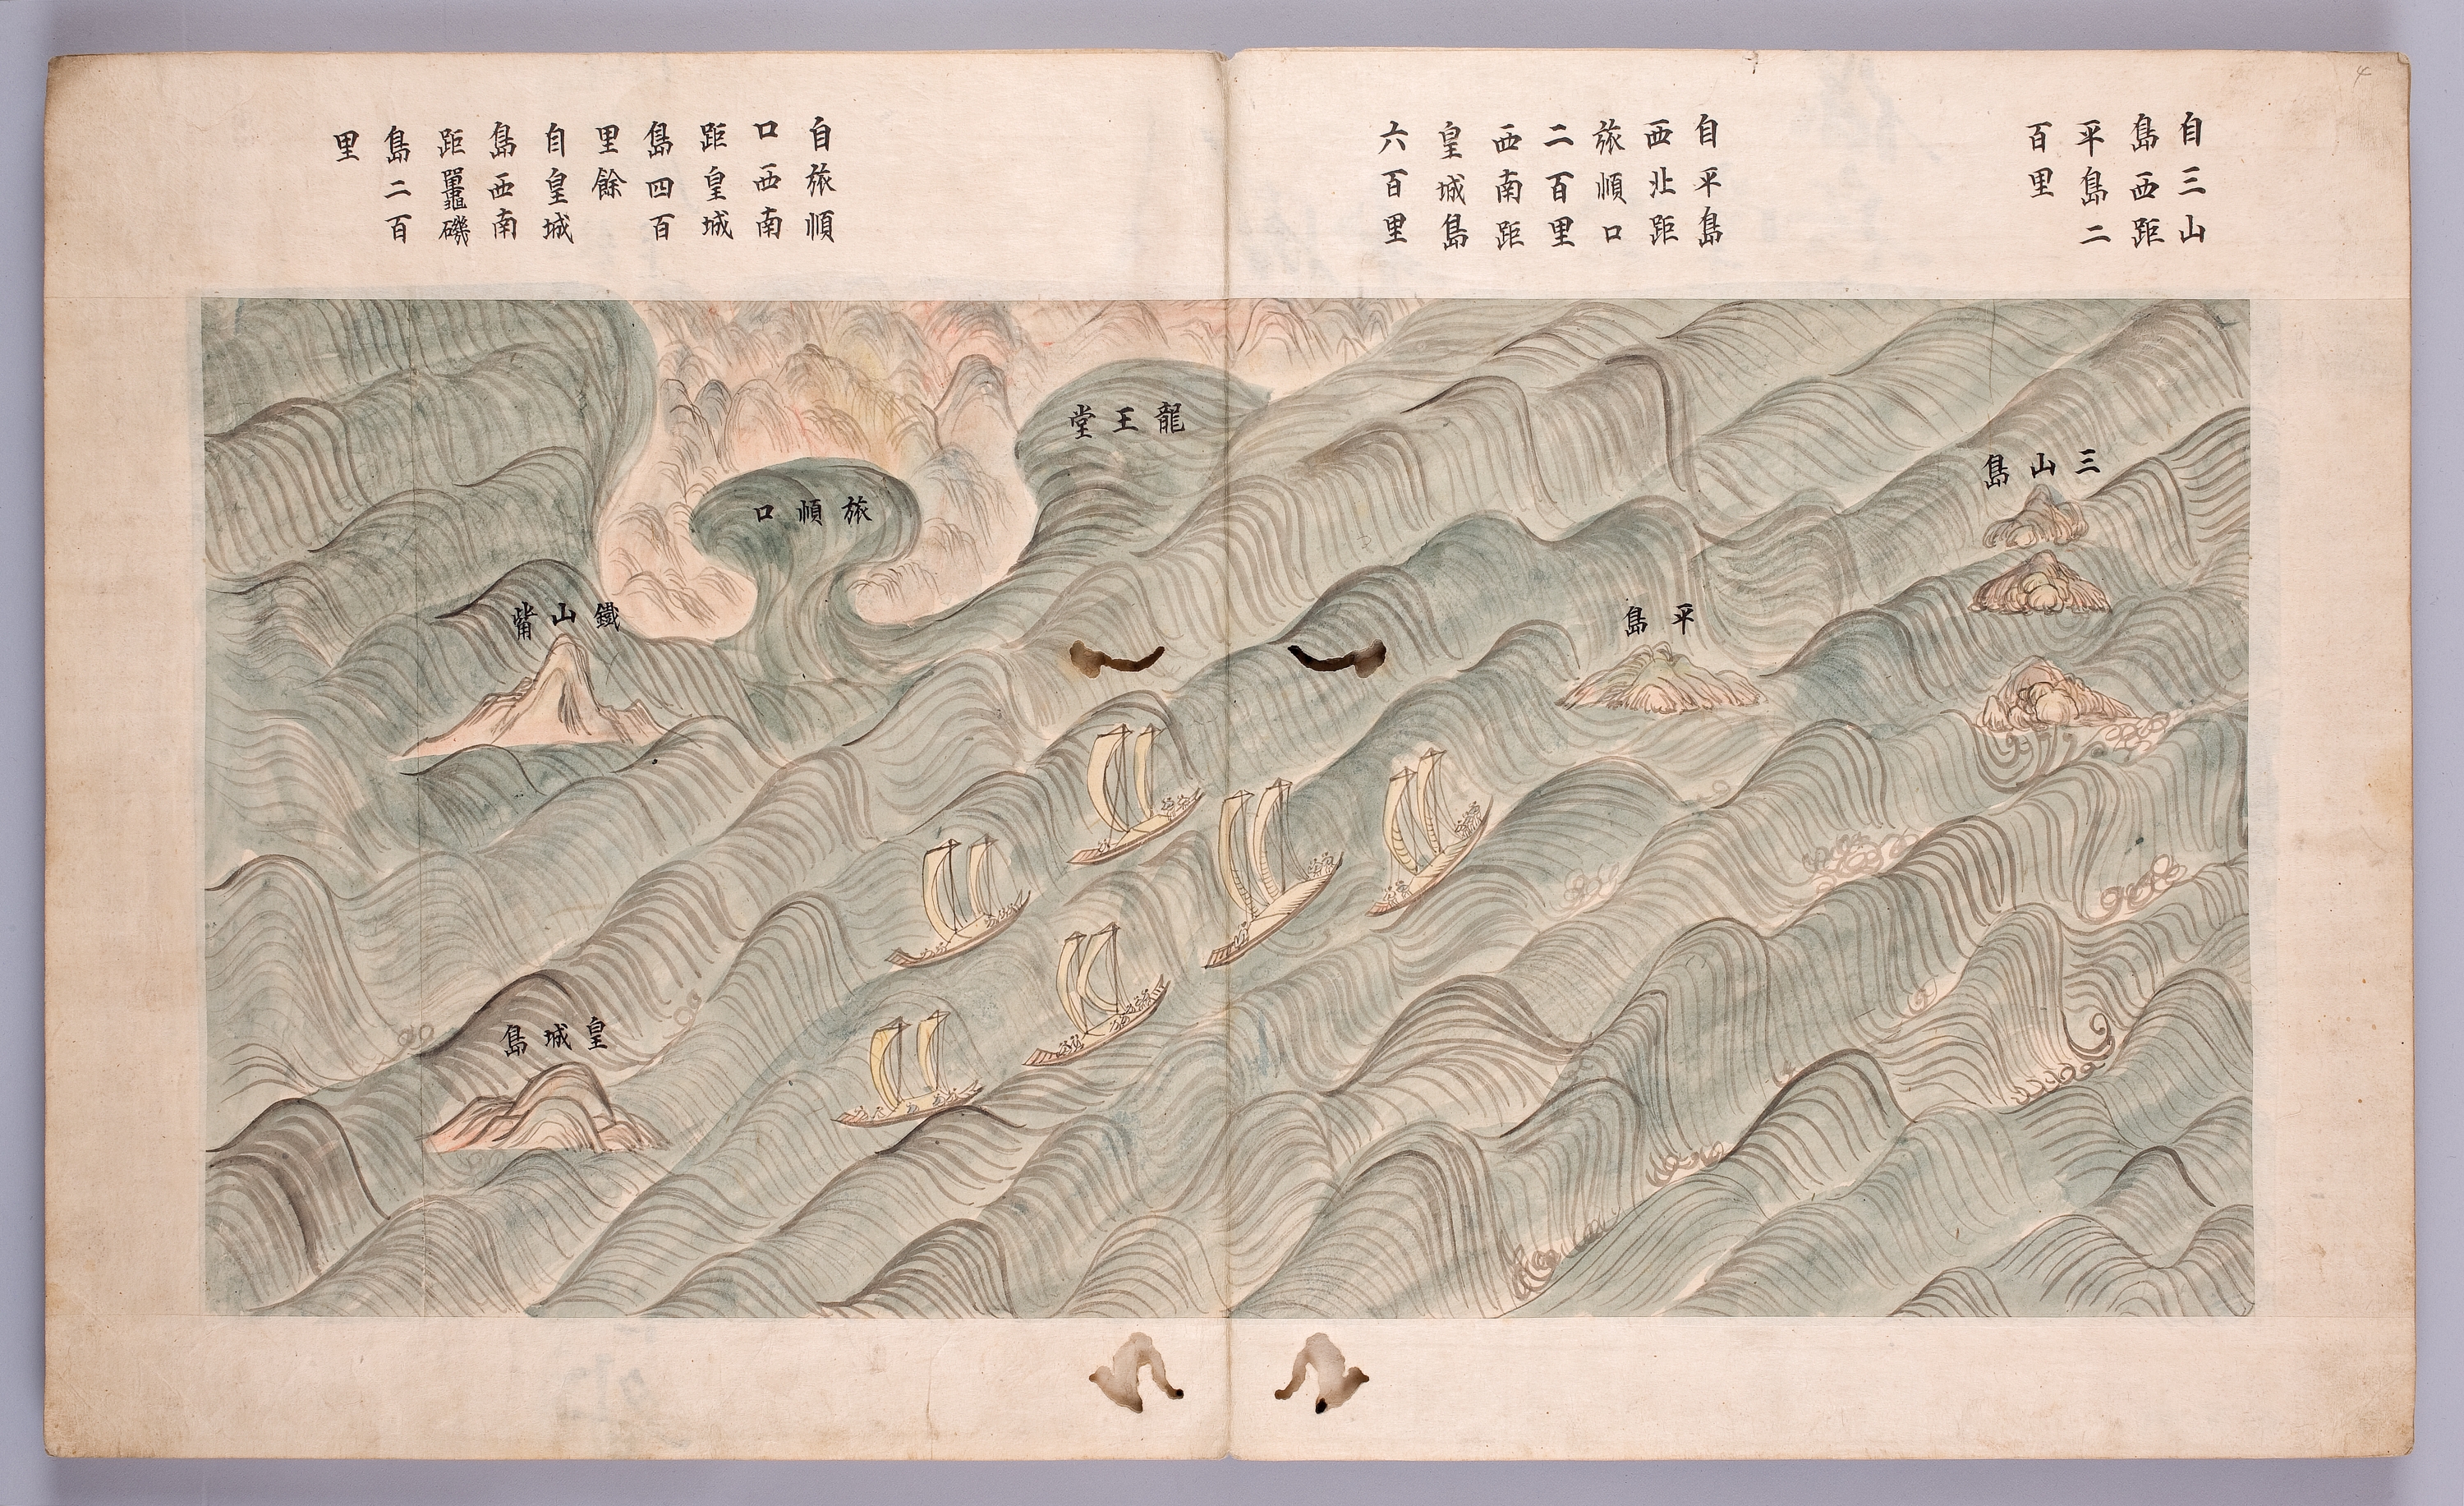 自三山
島西距
平島二
百里
自平島
西北距
旅順口
二百里
西南距
皇城島
六百里
自旅順
口西南
距皇城
島四百
里餘
自皇城
島西南
距鼉磯
島二百
里
三山島
平島
龍王堂
旅順口
鐵山觜
皇城島